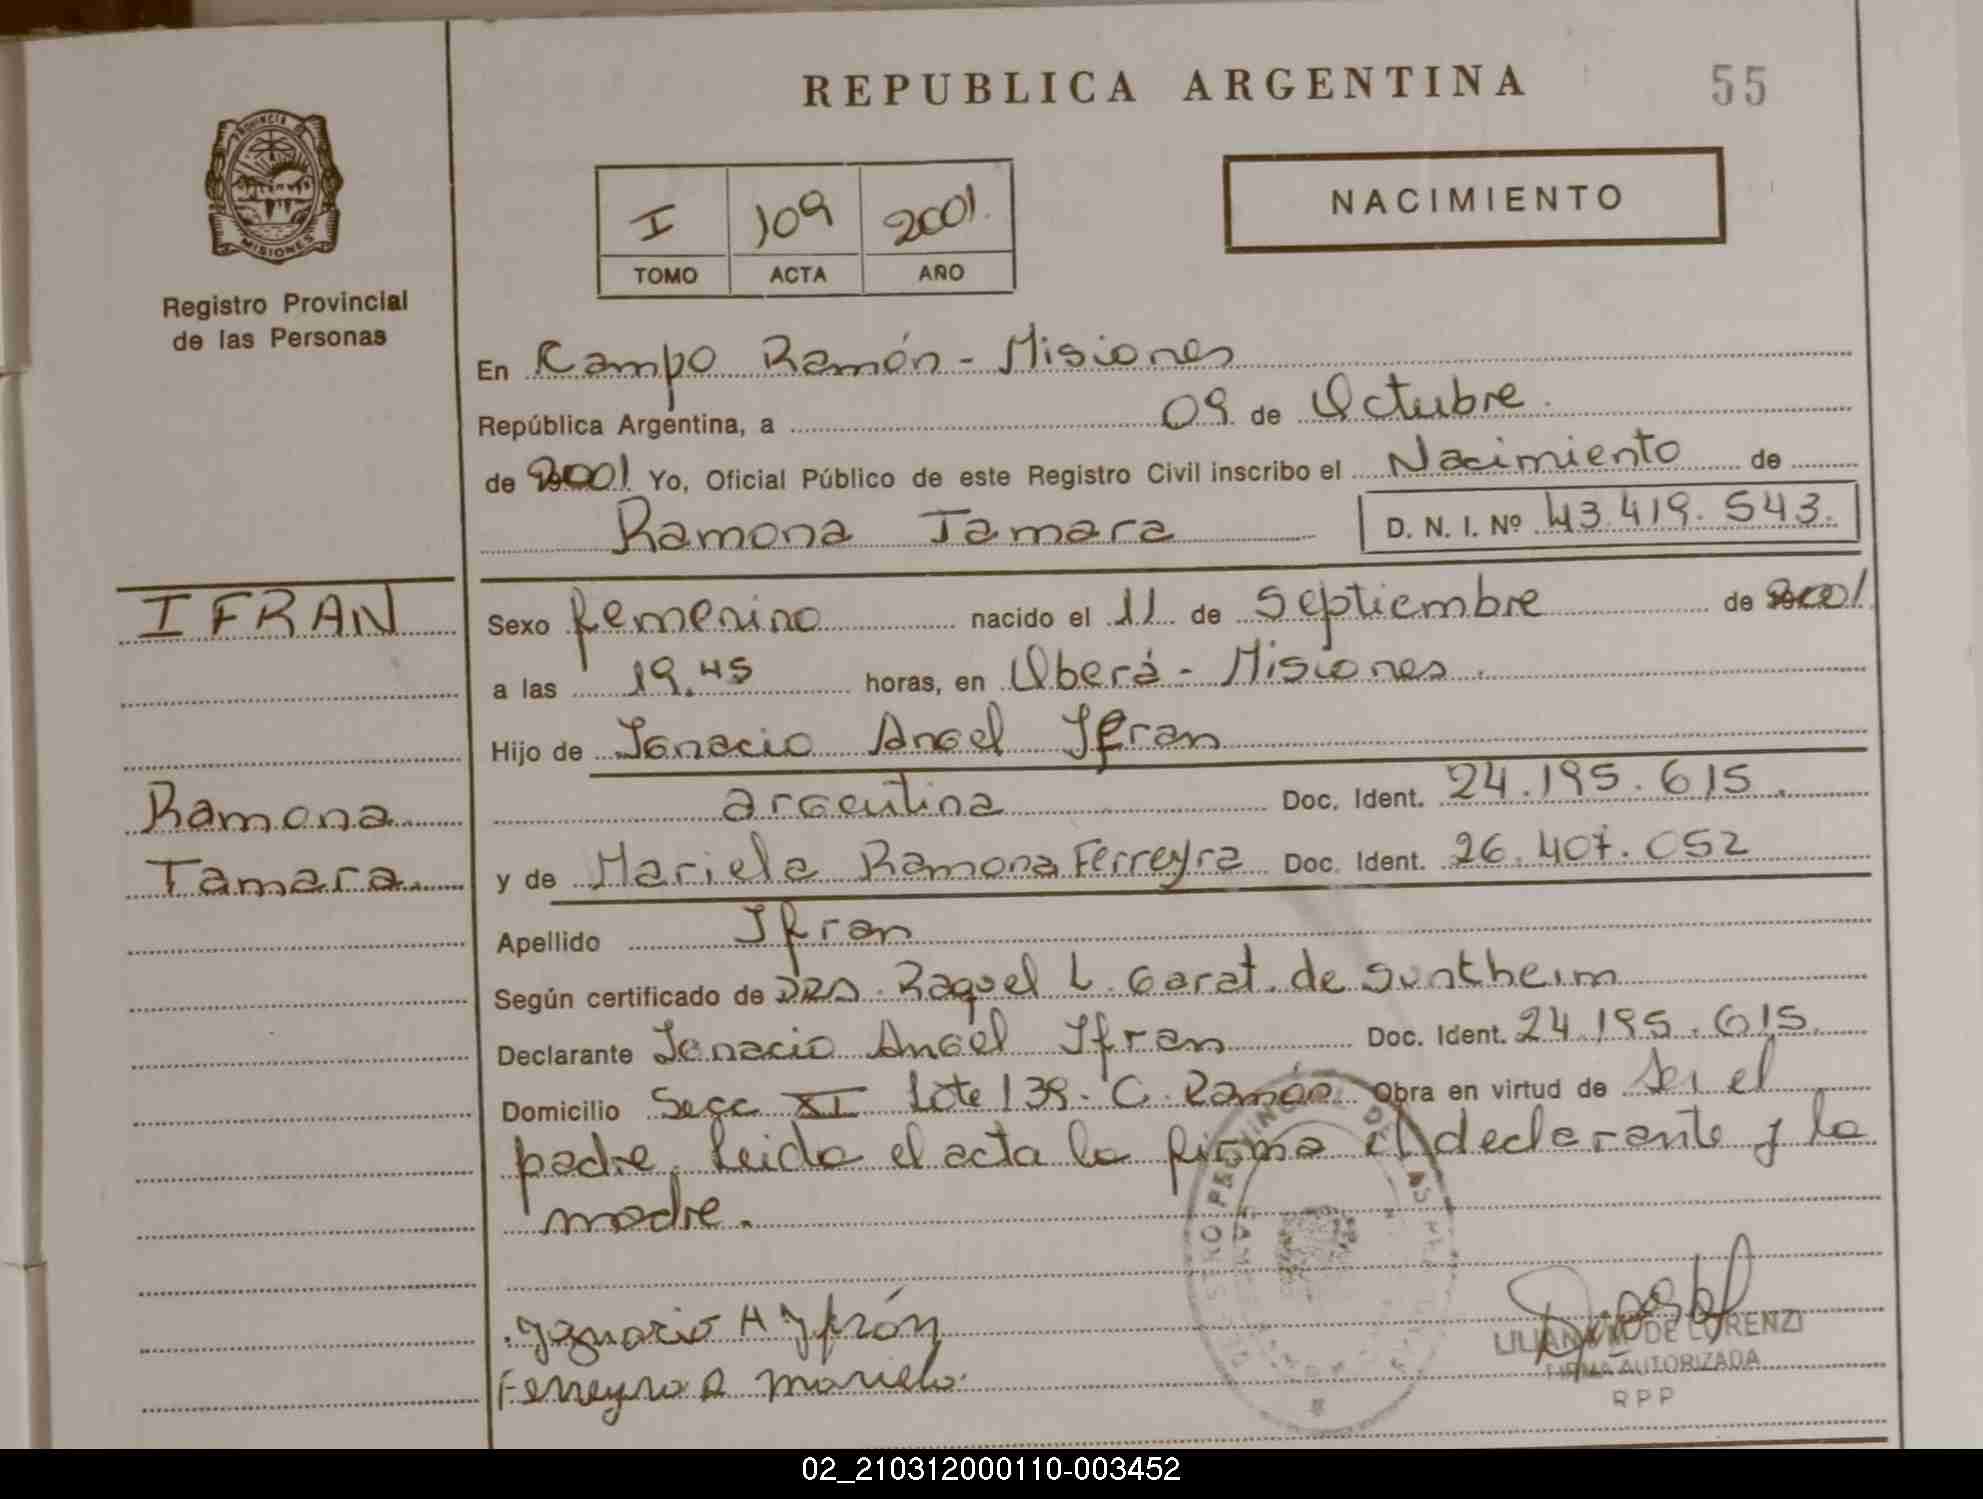 REPUBLICA ARGENTINA
55
PROVINCIA DE
MISIONES
Registro Provincial
de las Personas
I 109 2001.
TOMO ACTA AÑO
NACIMIENTO
En Campo Ramón - Misiones
República Argentina, a 09 de Octubre.
de 2001 Yo, Oficial Público de este Registro Civil inscribo el Nacimiento de
Ramona Tamara D. N. I. Nº 43.419.543.
IFRAN
Sexo femenino nacido el 11 de Septiembre de 2001.
a las 19.45 horas, en Oberá - Misiones.
Hijo de Ignacio Angel Ifran
Ramona
argentina Doc. Ident. 24.195.615.
Tamara.
y de Mariela Ramona Ferreyra Doc. Ident. 26.407.052
Apellido Ifran
Según certificado de DRA. Raquel L. Garat. de Suntheim
Declarante Ignacio Angel Ifran Doc. Ident. 24.195.615.
Domicilio Secc XI Lote 139 - C. Ramón Obra en virtud de ser el
padre. Leida el acta la firma el declarante y la
madre.
Ygnacio A Yfrán
Ferreyra R Mariela.
DE LORENZI
FIRMA AUTORIZADA
RPP
02_210312000110-003452